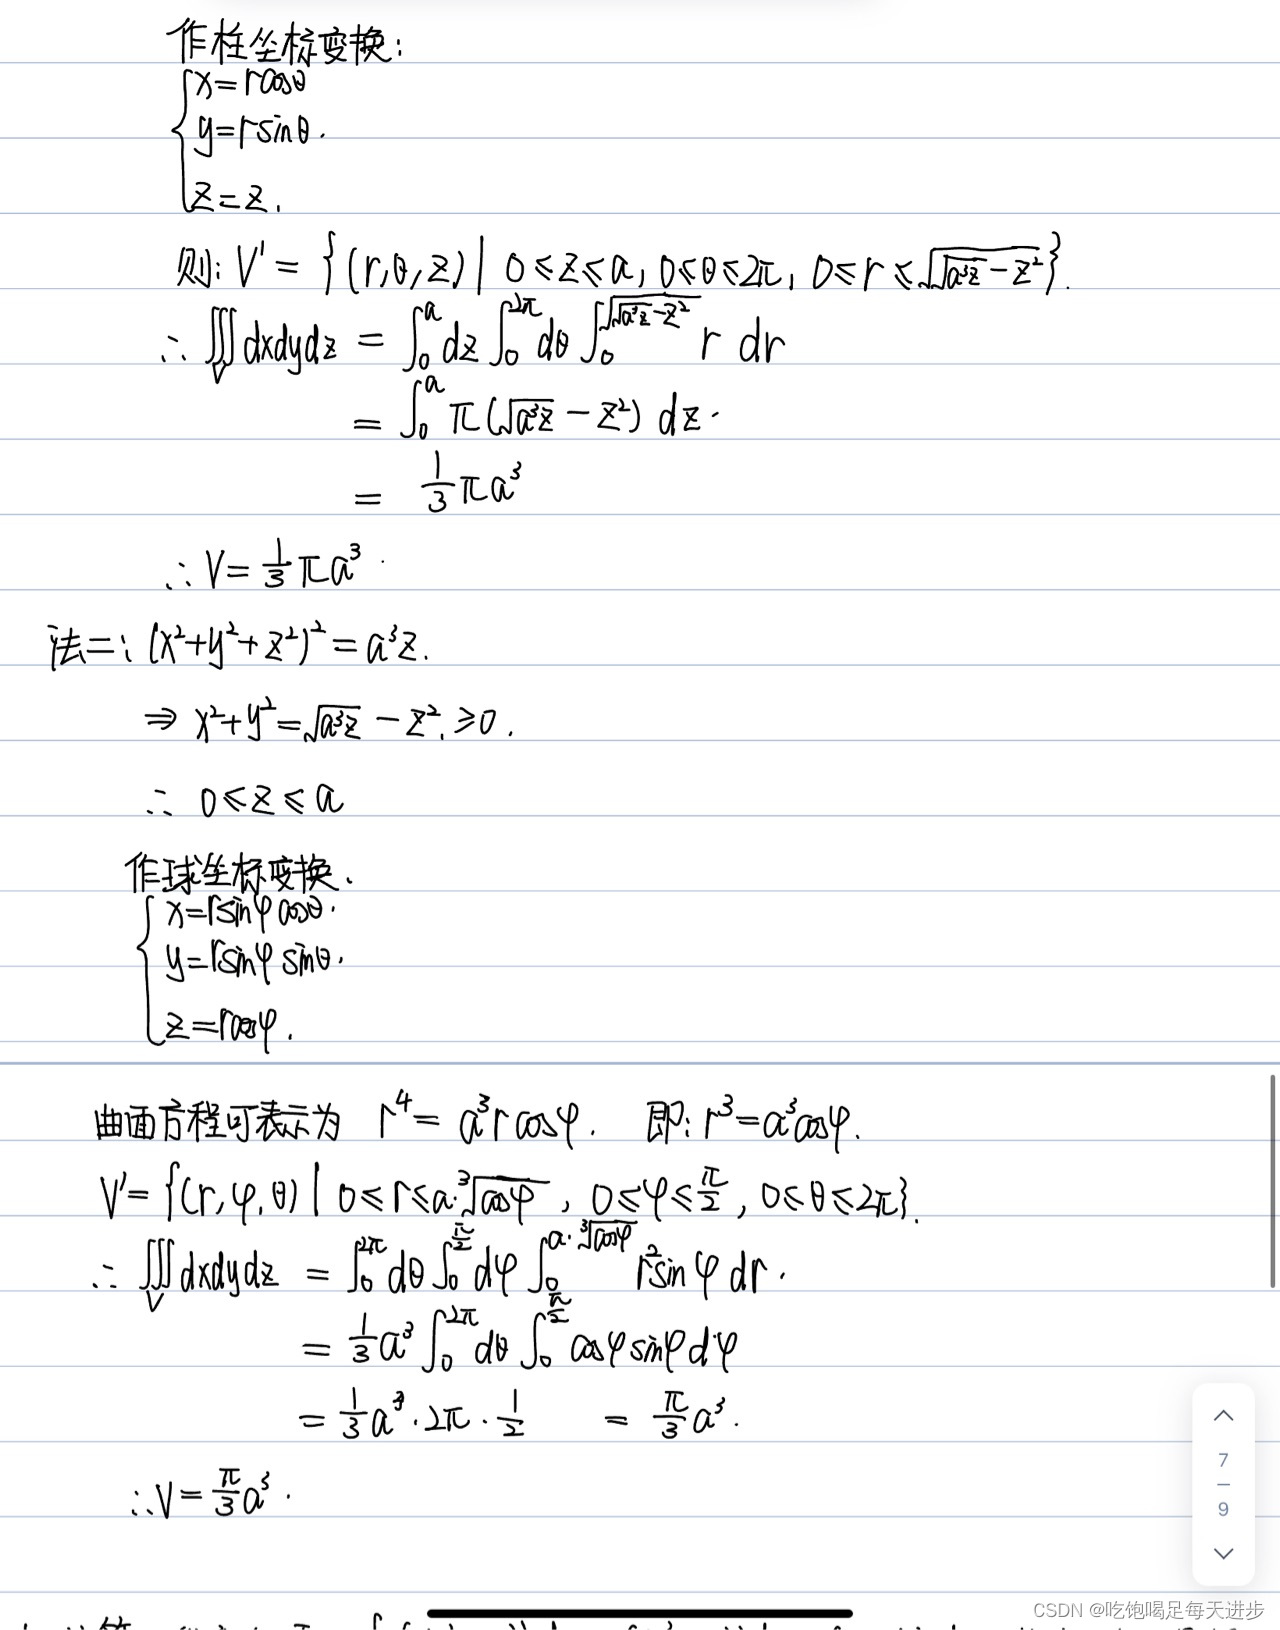 作柱坐标变换:
x=rcosθ
y=rsinθ.
z=z.
则: V'={(r,θ,z)| 0≤z≤a, 0≤θ≤2π, 0≤r≤√(√(a³z)-z²)}.
∴ ∭_V dxdydz = ∫_0^a dz ∫_0^{2π} dθ ∫_0^{√(√(a³z)-z²)} r dr
= ∫_0^a π(√(a³z)-z²) dz.
= 1/3 πa³
∴ V=1/3 πa³.
法二: (x²+y²+z²)²=a³z.
⇒ x²+y²=√(a³z)-z². ≥0.
∴ 0≤z≤a
作球坐标变换.
x=rsinφcosθ.
y=rsinφsinθ.
z=rcosφ.
曲面方程可表示为 r⁴=a³rcosφ. 即: r³=a³cosφ.
V'={(r,φ,θ)| 0≤r≤a·∛cosφ, 0≤φ≤π/2, 0≤θ≤2π}.
∴ ∭_V dxdydz = ∫_0^{2π} dθ ∫_0^{π/2} dφ ∫_0^{a·∛cosφ} r²sinφ dr.
= 1/3 a³ ∫_0^{2π} dθ ∫_0^{π/2} cosφsinφdφ
= 1/3 a³·2π·1/2 = π/3 a³.
∴V=π/3 a³.
7
9
CSDN @吃饱喝足每天进步